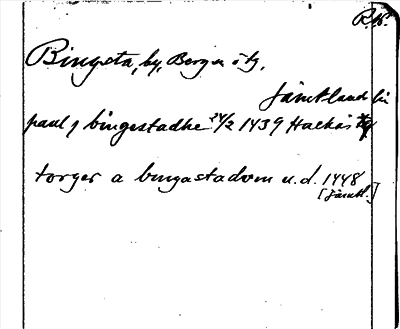 R.H.
Bingsta, by, Bergs tg,
Jämtland län
paul j bingestadhe 24/2 1439 Hackås
torger a bingastadum u.d. 1448
[Jämtl.]